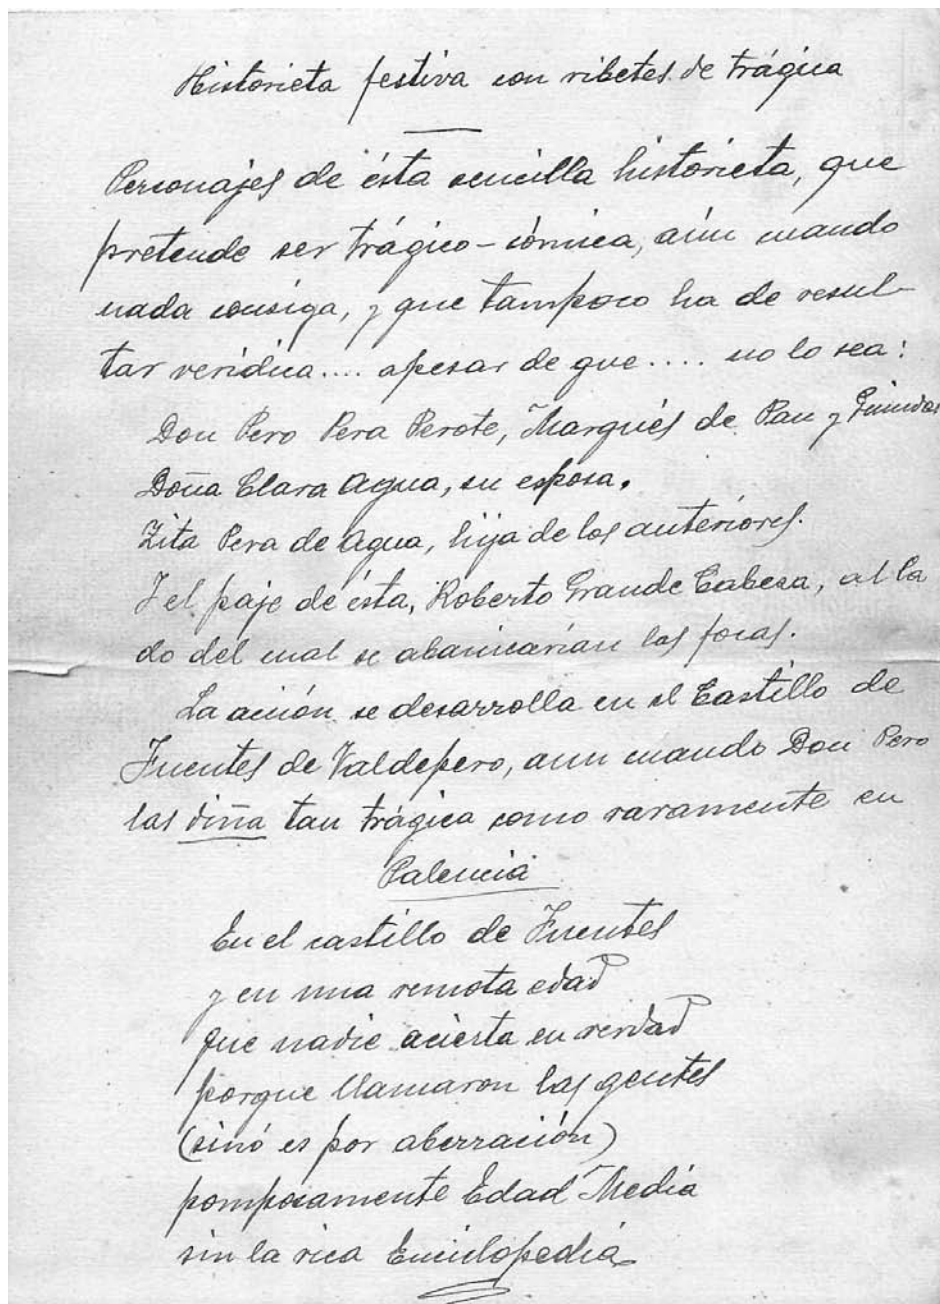 Historieta festiva con ribetes de trágica
Personajes de ésta sencilla historieta, que
pretende ser trágico-cómica, aún cuando
nada consiga, y que tampoco ha de resul-
tar verídica.... apesar de que.... no lo sea:
Don Pero Pera Perote, Marqués de Pan y Guindas
Doña Clara Agua, su esposa.
Zita Pera de Agua, hija de los anteriores.
Y el paje de ésta, Roberto Grande Cabeza, al la
do del cual se abanicarían las focas.
La acción se desarrolla en el Castillo de
Fuentes de Valdepero, aun cuando Don Pero
las diña tan trágica como raramente en
Palencia
En el castillo de Fuentes
y en una remota edad
que nadie acierta en verdad
porque llamaron las gentes
(sinó es por aberración)
pomposamente Edad Media
sin la rica Enciclopedia